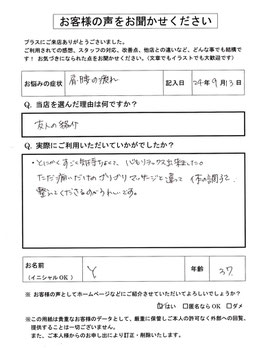 お客様の声をお聞かせください
プラスにご来店ありがとうございました。
ご利用されての感想、スタッフの対応、改善点、他店との違いなど、どんな事でも結構です！ お気づきになられた点をお聞かせください。(文章でもイラストでも大歓迎です)
お悩みの症状
肩、腰の疲れ
記入日
24年9月13日
Q. 当店を選んだ理由は何ですか？
友人の紹介
Q. 実際にご利用いただいていかがでしたか？
・とにかくすごく気持ちよくて、いつもリラックス出来ました。
ただ痛いだけのゴリゴリマッサージと違って体の調子も
整えてくださるのがうれしいです。
お名前
(イニシャルOK)
Y
年齢
37
※ お客様の声としてホームページなどにご紹介させていただいてよろしいでしょうか？
☑はい □匿名ならOK □ダメ
※この用紙は貴重なお客様のデータとして、厳重に保管しご本人の許可なく外部への回覧、
提供することは一切ございません。
また、ご本人様からのお申し出により訂正・削除いたします。